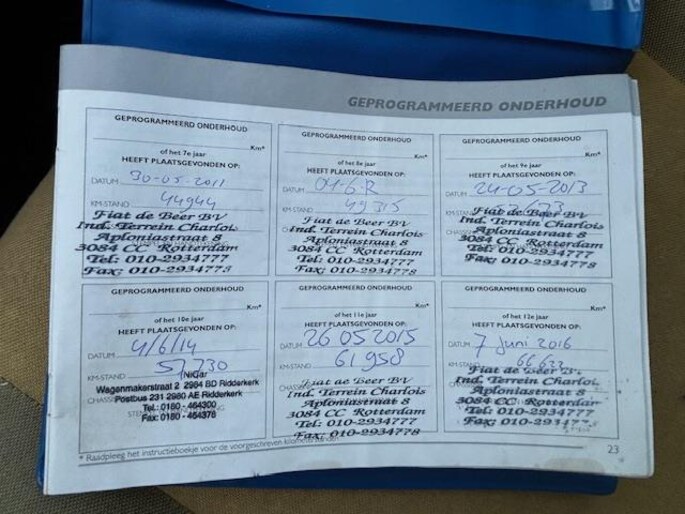 GEPROGRAMMEERD ONDERHOUD
GEPROGRAMMEERD ONDERHOUD
Km*
of het 7e jaar
HEEFT PLAATSGEVONDEN OP:
DATUM 30-05-2011
KM-STAND 44944
Fiat de Beer BV
Ind. Terrein Charlois
Aploniastraat 8
3084 CC Rotterdam
Tel: 010-2934777
Fax: 010-2934778
GEPROGRAMMEERD ONDERHOUD
Km*
of het 8e jaar
HEEFT PLAATSGEVONDEN OP:
DATUM
KM-STAND 49315
Fiat de Beer BV
Ind. Terrein Charlois
Aploniastraat 8
3084 CC Rotterdam
Tel: 010-2934777
Fax: 010-2934778
GEPROGRAMMEERD ONDERHOUD
Km*
of het 9e jaar
HEEFT PLAATSGEVONDEN OP:
DATUM 24-05-2013
KM-STAND
Fiat de Beer BV
Ind. Terrein Charlois
Aploniastraat 8
3084 CC Rotterdam
Tel: 010-2934777
Fax: 010-2934778
GEPROGRAMMEERD ONDERHOUD
Km*
of het 10e jaar
HEEFT PLAATSGEVONDEN OP:
DATUM 4/6/14
KM-STAND 57730
Wagenmakerstraat 2 2984 BD Ridderkerk
Postbus 231 2980 AE Ridderkerk
Tel.: 0180 - 464300
Fax: 0180 - 464378
GEPROGRAMMEERD ONDERHOUD
Km*
of het 11e jaar
HEEFT PLAATSGEVONDEN OP:
DATUM 26 05 2015
KM-STAND 61958
Fiat de Beer BV
Ind. Terrein Charlois
Aploniastraat 8
3084 CC Rotterdam
Tel: 010-2934777
Fax: 010-2934778
GEPROGRAMMEERD ONDERHOUD
Km*
of het 12e jaar
HEEFT PLAATSGEVONDEN OP:
DATUM 7 juni 2016
KM-STAND
Fiat de Beer BV
Ind. Terrein Charlois
Aploniastraat 8
3084 CC Rotterdam
Tel: 010-2934777
Fax: 010-2934778
* Raadpleeg het instructieboekje voor de voorgeschreven kilometerstanden
23